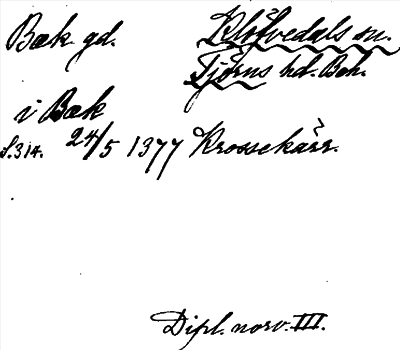 Bæk gd.
Klövedals sn.
Tjörns hd. Boh.
i Bæk
S.314. 24/5 1377 Krossekärr.
Dipl. norv. III.